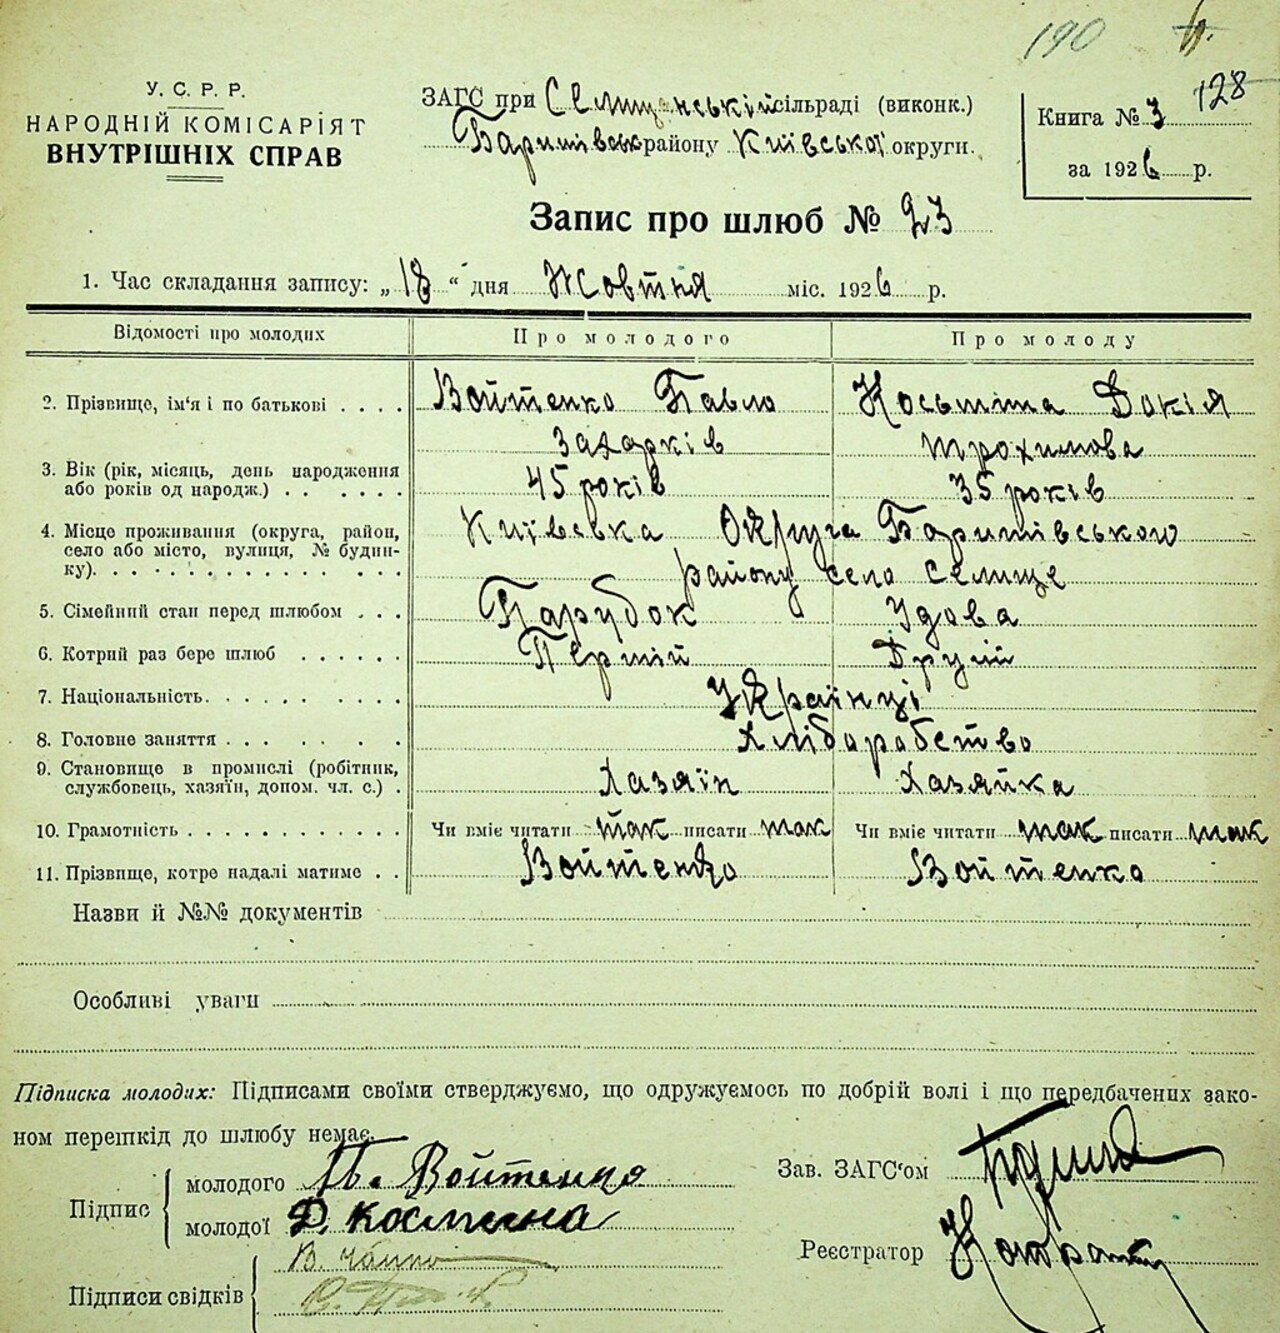 190
У. С. Р. Р.
НАРОДНІЙ КОМІСАРІЯТ
ВНУТРІШНІХ СПРАВ
ЗАГС при Селищанській сільраді (виконк.)
Баришівськ району Київської округи.
Книга № 3 128
за 1926 р.
Запис про шлюб № 23
1. Час складання запису: „18“ дня Жовтня міс. 1926 р.
Відомості про молодих Про молодого Про молоду
2. Прізвище, ім'я і по батькові . . . . Войтенко Павло Косьміна Докія
Захарків Трохимова
3. Вік (рік, місяць, день народження
або років од народж.) . . . . . . 45 років 35 років
4. Місце проживання (округа, район, Київська Округа Баришівського
село або місто, вулиця, № будин-
ку). . . . . . . . . . . . . . . району село Селище
5. Сімейний стан перед шлюбом . . . Парубок Удова
6. Котрий раз бере шлюб . . . . . . Перший Другій
7. Національність. . . . . . . . . . Українці
8. Головне заняття . . . . . . . Хліборобство
9. Становище в промислі (робітник,
службовець, хазяїн, допом. чл. с.) . Хазяїн Хазяйка
10. Грамотність . . . . . . . . . . . . Чи вміє читати так писати так Чи вміє читати так писати так
11. Прізвище, котре надалі матиме . . Войтенко Войтенко
Назви й №№ документів
Особливі уваги
Підписка молодих: Підписами своїми стверджуємо, що одружуємось по добрій волі і що передбачених зако-
ном перешкід до шлюбу немає.
Підпис
молодого Войтенко
молодої Д. Космина
Зав. ЗАГС'ом
Реєстратор
Підписи свідків